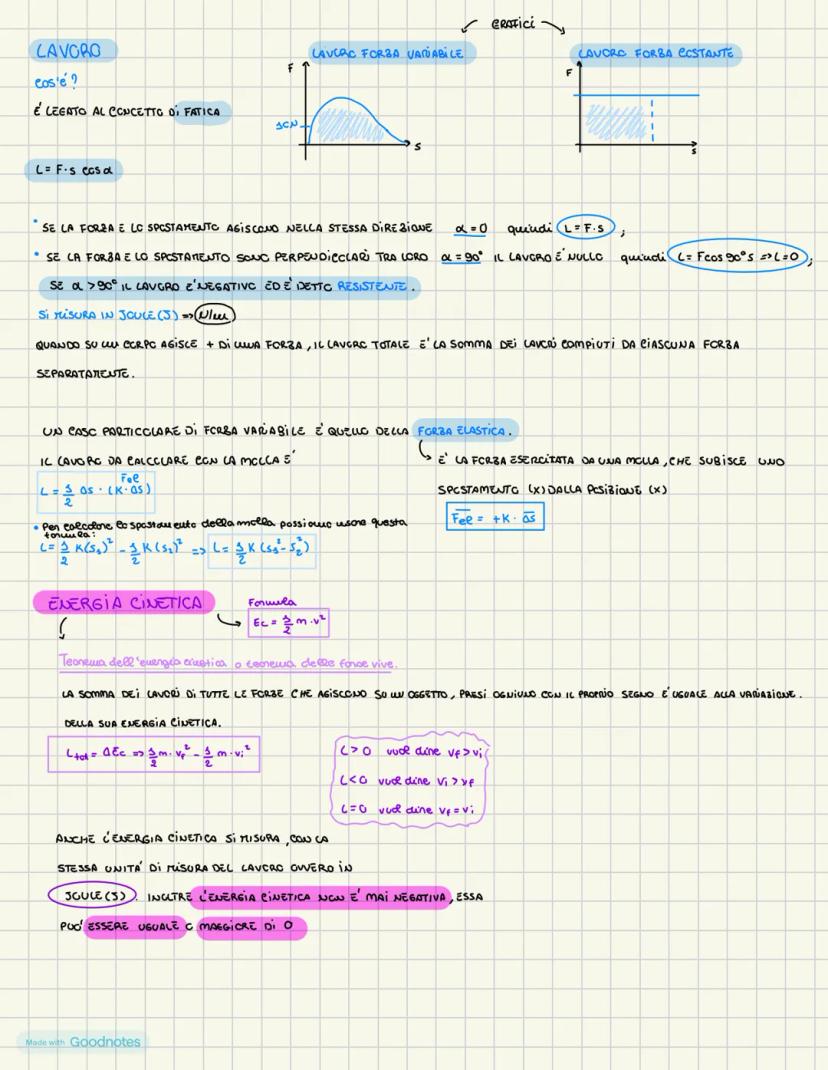 GRAFICI
LAVORO
LAVORO FORZA VARIABILE
LAVORO FORZA COSTANTE
cos'é?
F
10N
S
F
S
É LEGATO AL CONCETTO di FATICA
L= F·s cos α
• SE LA FORZA E LO SPOSTAMENTO AGISCONO NELLA STESSA DIREZIONE α=0 quindi L=F·S ;
• SE LA FORZA E LO SPOSTAMENTO SONO PERPENDICOLARI TRA LORO α=90° IL LAVORO E' NULLO quindi L= Fcos 90° s => L=0 ;
SE α >90° IL LAVORO E' NEGATIVO ED E' DETTO RESISTENTE.
Si MISURA IN JOULE (J) => N/m
QUANDO SU UN CORPO AGISCE + Di UNA FORZA, IL LAVORO TOTALE E' LA SOMMA DEI LAVORI COMPIUTI DA CIASCUNA FORZA
SEPARATAMENTE.
UN CASO PARTICOLARE DI FORZA VARIABILE E' QUELLO DELLA FORZA ELASTICA.
IL LAVORO DA CALCOLARE CON LA MOLLA E'
E' LA FORZA ESERCITATA DA UNA MOLLA, CHE SUBISCE UNO
SPOSTAMENTO (X) DALLA POSIZIONE (X)
Fel
L = 1/2 ΔS · (K·ΔS)
Fel = +K· ΔS
• Per calcolare lo spostamento della molla possiamo usare questa
formula:
L= 1/2 K(S1)² - 1/2 K(S2)² => L= 1/2 K (S1²-S2²)
ENERGIA CINETICA
Formula
Ec = 1/2 m·v²
Teorema dell'energia cinetica o teorema delle forze vive.
LA SOMMA DEI LAVORI DI TUTTE LE FORZE CHE AGISCONO SU UN OGGETTO, PRESI OGNIUNO CON IL PROPRIO SEGNO E' UGUALE ALLA VARIAZIONE.
DELLA SUA ENERGIA CINETICA.
Ltot = ΔEc => 1/2 m· vf² - 1/2 m·vi²
L>0 vuol dire vf>vi
L<0 vuol dire vi>vf
L=0 vuol dire vf=vi
ANCHE L'ENERGIA CINETICA Si MISURA, CON LA
STESSA UNITA' DI MISURA DEL LAVORO OVVERO IN
JOULE (J). INOLTRE L'ENERGIA CINETICA NON E' MAI NEGATIVA, ESSA
PUO' ESSERE UGUALE O MAGGIORE DI 0
Made with Goodnotes